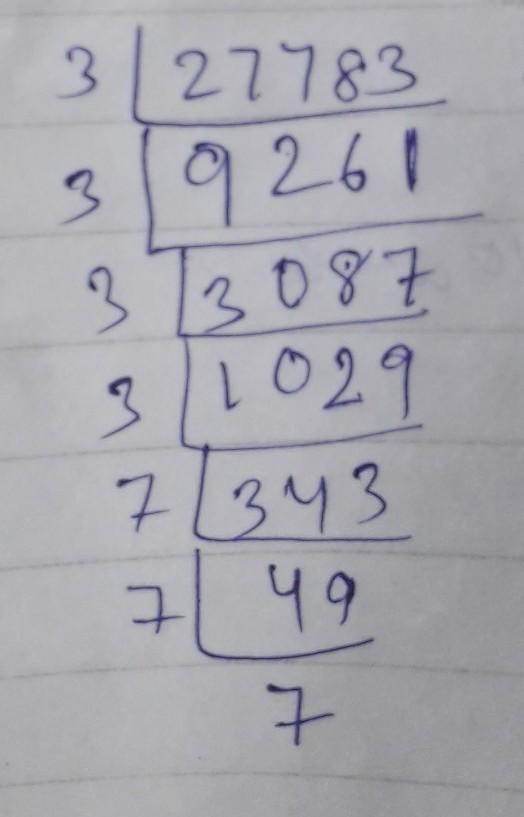 3 27783
3 9261
3 3087
3 1029
7 343
7 49
7